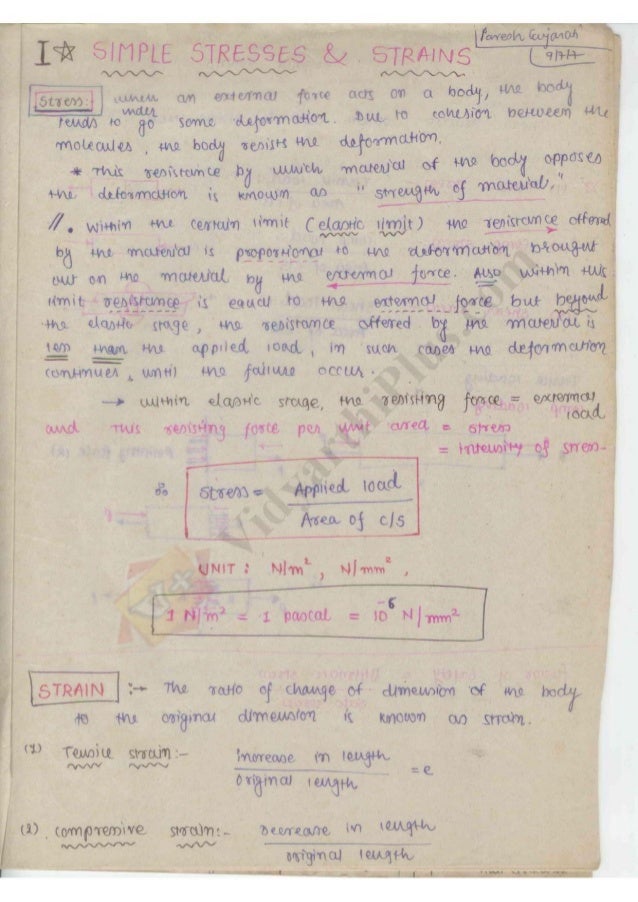 Paresh Gujarati
9/7/7
I ☆ SIMPLE STRESSES & STRAINS
Stress:- when an external force acts on a body, the body
tends to under go some deformation. Due to cohesion between the
molecules, the body resists the deformation.
* This resistance by which material of the body opposes
the deformation is known as "strength of material."
//. Within the certain limit (elastic limit) the resistance offered
by the material is proportional to the deformation brought
out on the material by the external force. Also within this
limit resistance is equal to the external force but beyond
the elastic stage, the resistance offered by the material is
less than the applied load, in such cases the deformation
continues, until the failure occur.
→ within elastic stage, the resisting force = external load
and This resisting force per unit area = stress
= intensity of stress.
∴ Stress = Applied load
Area of c/s
UNIT : N/m², N/mm²,
1 N/m² = 1 pascal = 10⁻⁶ N/mm²
STRAIN :→ The ratio of change of dimension of the body
to the original dimension is known as strain.
(1) Tensile strain:- increase in length
original length = e
(2). compressive strain:- Decrease in length
original length
VidyarthiPlus.com
V+